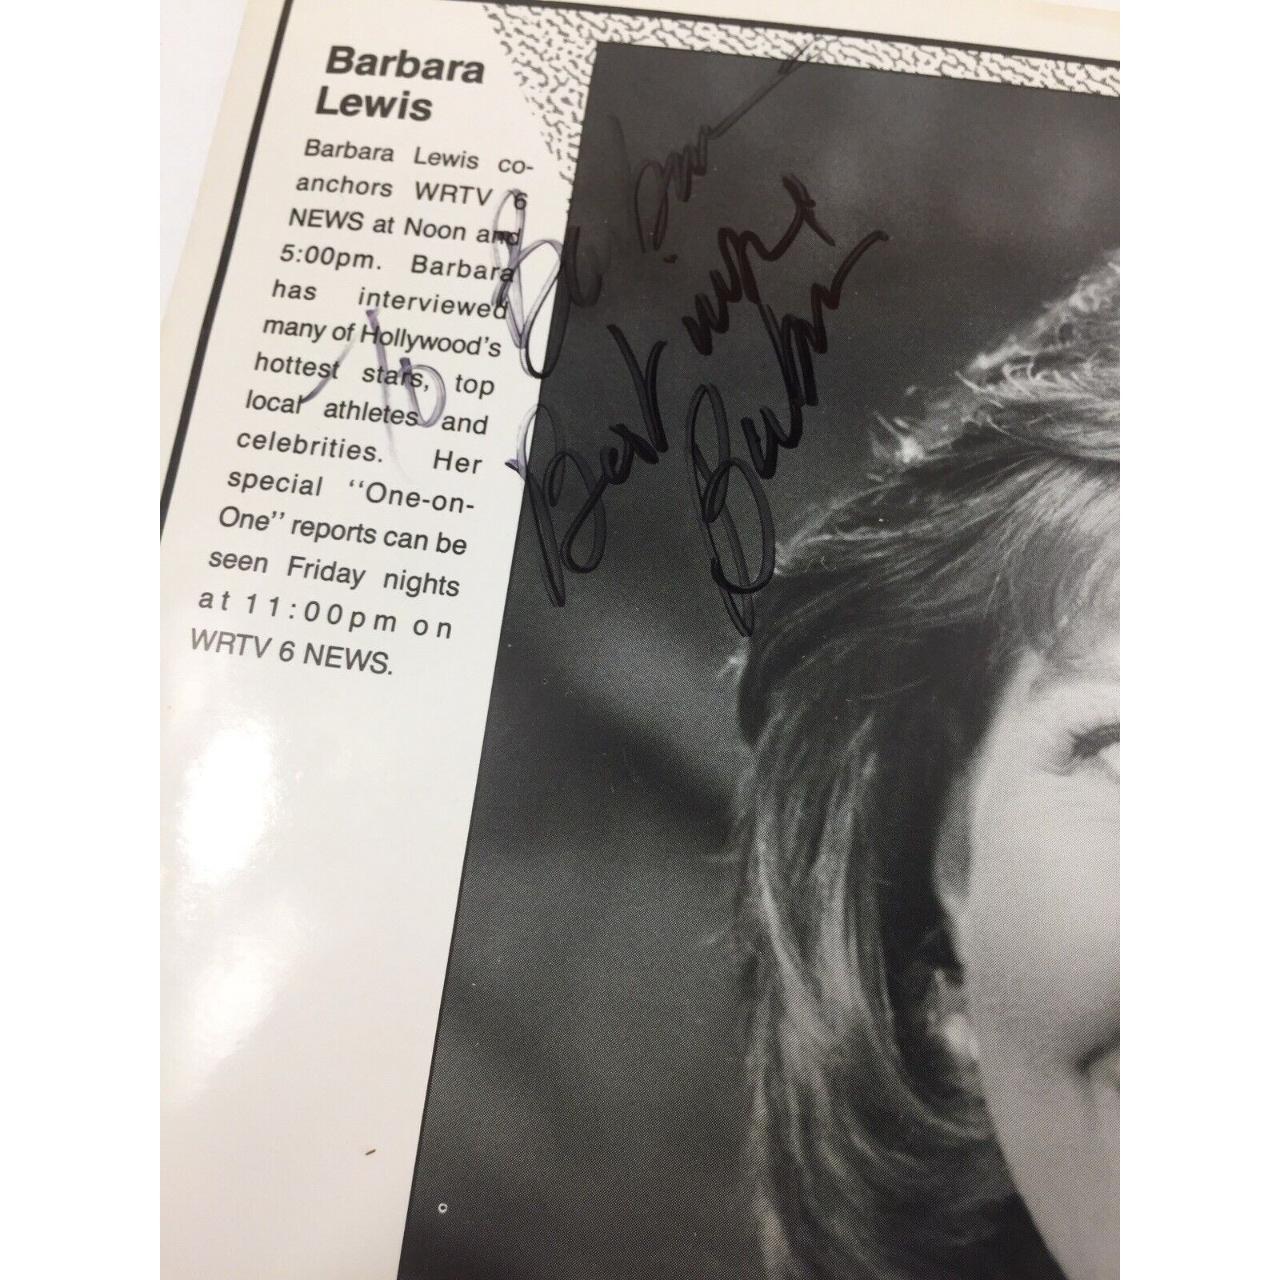 Barbara
Lewis
Barbara Lewis co-
anchors WRTV 6
NEWS at Noon and
5:00pm. Barbara
has interviewed
many of Hollywood's
hottest stars, top
local athletes and
celebrities. Her
special "One-on-
One" reports can be
seen Friday nights
at 11:00pm on
WRTV 6 NEWS.
To Barbara
Best wishes
Barbara